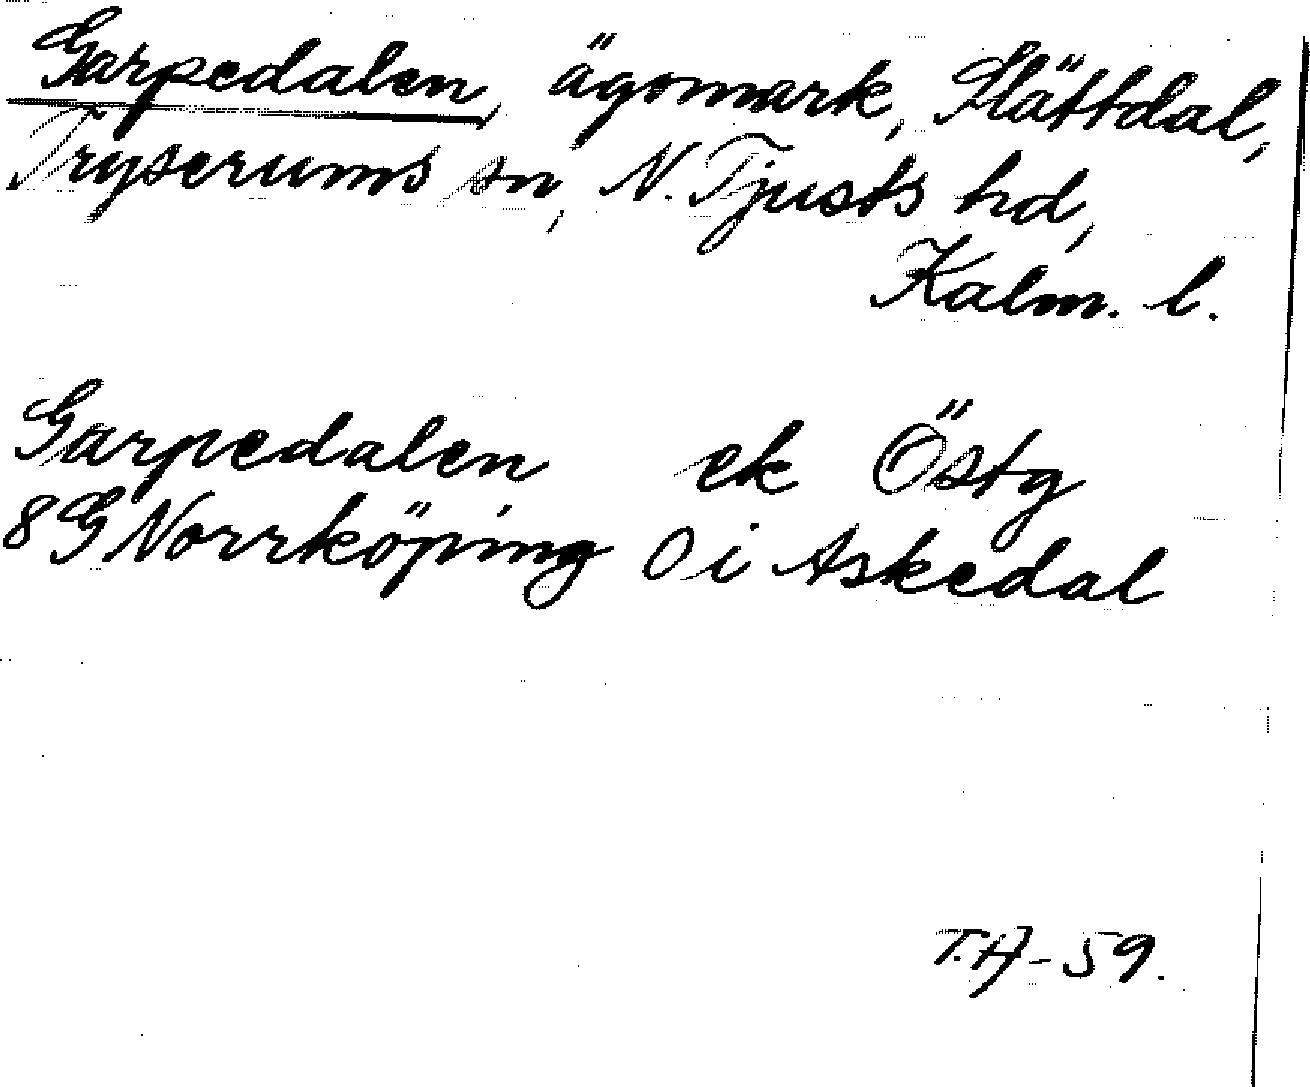 Garpedalen, ägomark, Slättdal,
Tryserums sn, N. Tjusts hd,
Kalm. l.
Garpedalen ek Östg
8G Norrköping O i Askedal
T.A-59.